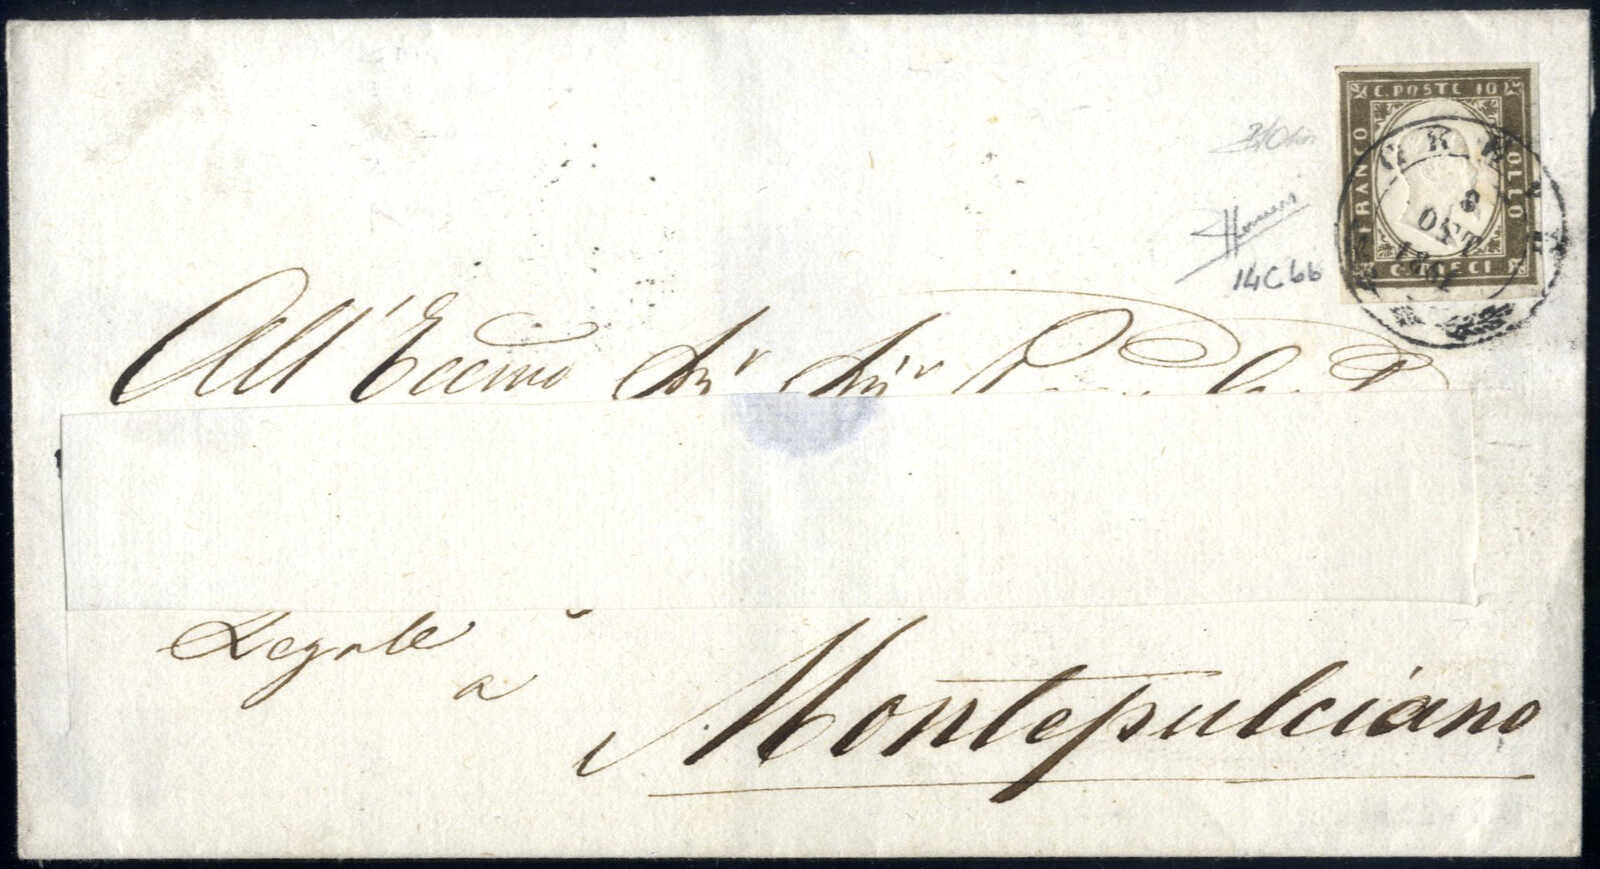 C. POSTE 10
FRANCO
BOLLO
C. DIECI
8
OTT
1861
14Cbb
All' Eccmo Sigr Sigr
Legale
a
Montepulciano